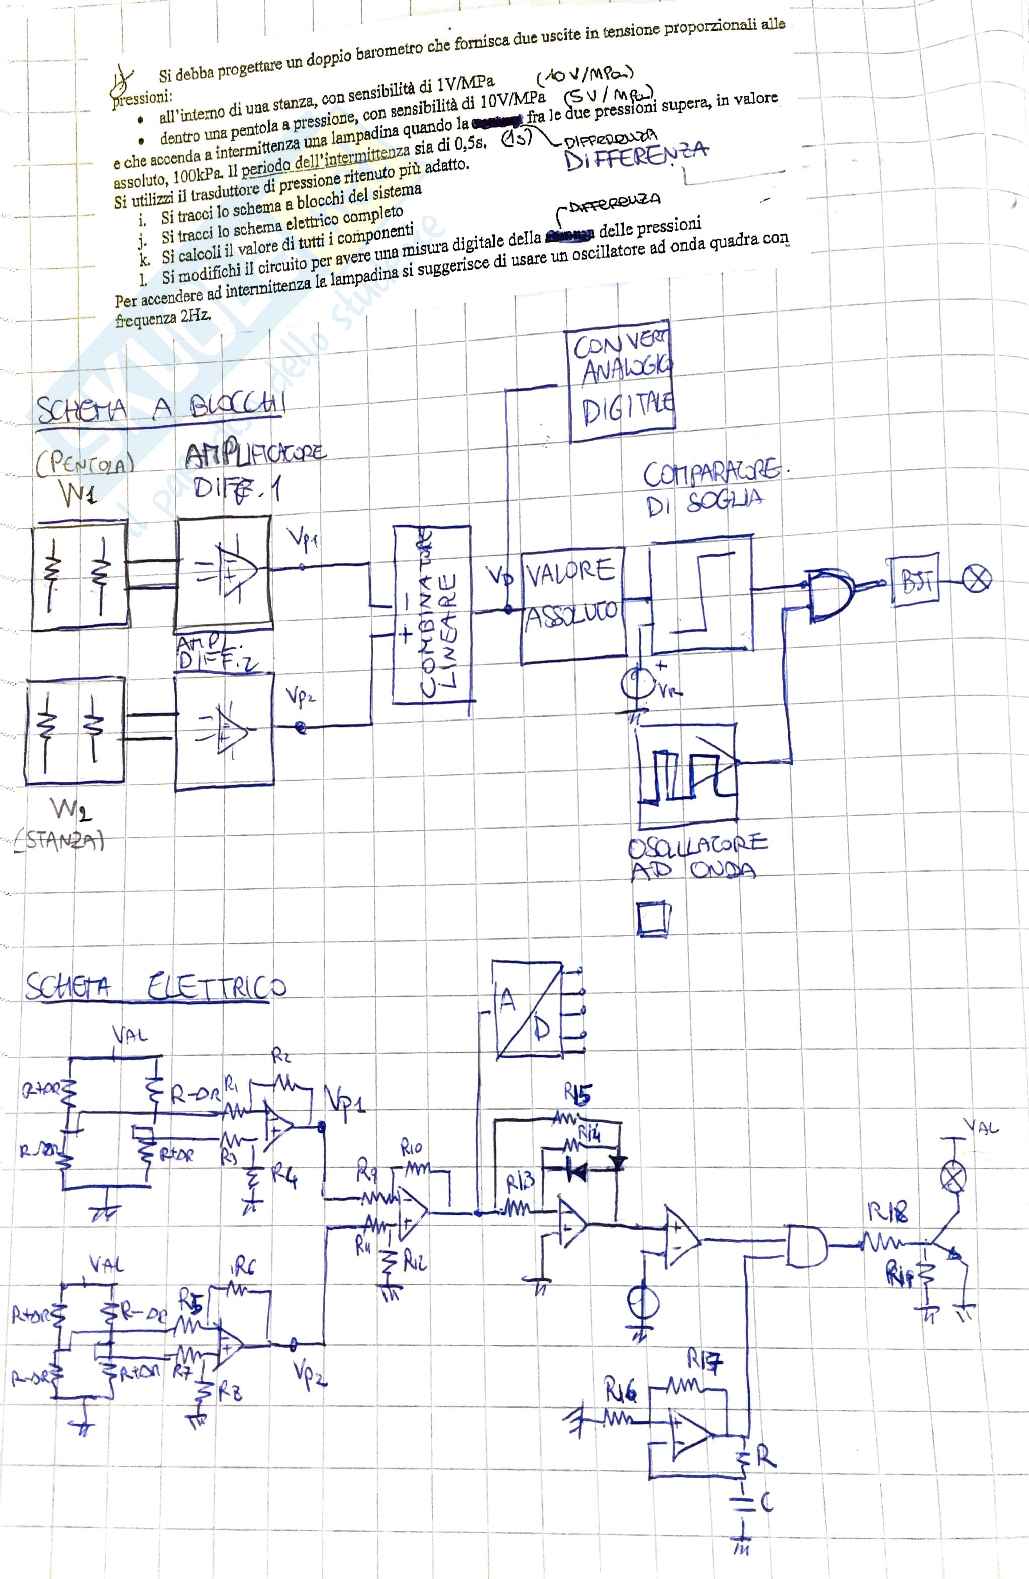 Si debba progettare un doppio barometro che fornisca due uscite in tensione proporzionali alle
pressioni:
• all'interno di una stanza, con sensibilità di 1V/MPa (10V/MPa)
• dentro una pentola a pressione, con sensibilità di 10V/MPa (5V/MPa)
e che accenda a intermittenza una lampadina quando la fra le due pressioni supera, in valore
assoluto, 100kPa. Il periodo dell'intermittenza sia di 0,5s. (1s) DIFFERENZA
DIFFERENZA
Si utilizzi il trasduttore di pressione ritenuto più adatto.
i. Si tracci lo schema a blocchi del sistema
j. Si tracci lo schema elettrico completo
k. Si calcoli il valore di tutti i componenti
DIFFERENZA
l. Si modifichi il circuito per avere una misura digitale della delle pressioni
Per accendere ad intermittenza la lampadina si suggerisce di usare un oscillatore ad onda quadra con
frequenza 2Hz.
CONVERT
ANALOGIC
DIGITALE
SCHEMA A BLOCCHI
(PENTOLA)
W1
AMPLIFICATORE
DIFF.1
COMPARATORE
DI SOGLIA
Vp1
COMBINATORE
LINEARE
Vp
VALORE
ASSOLUTO
BJT
AMPL.
DIFF.2
Vp2
VR
W2
(STANZA)
OSCILLATORE
AD ONDA
SCHEMA ELETTRICO
A
D
VAL
R+ΔR
R-ΔR
R1
R2
Vp1
R-ΔR
R+ΔR
R3
R4
R9
R10
R11
R12
R13
R14
R15
VAL
R18
R19
VAL
R+ΔR
R-ΔR
R5
R6
R-ΔR
R+ΔR
R7
R8
Vp2
R16
R17
R
C